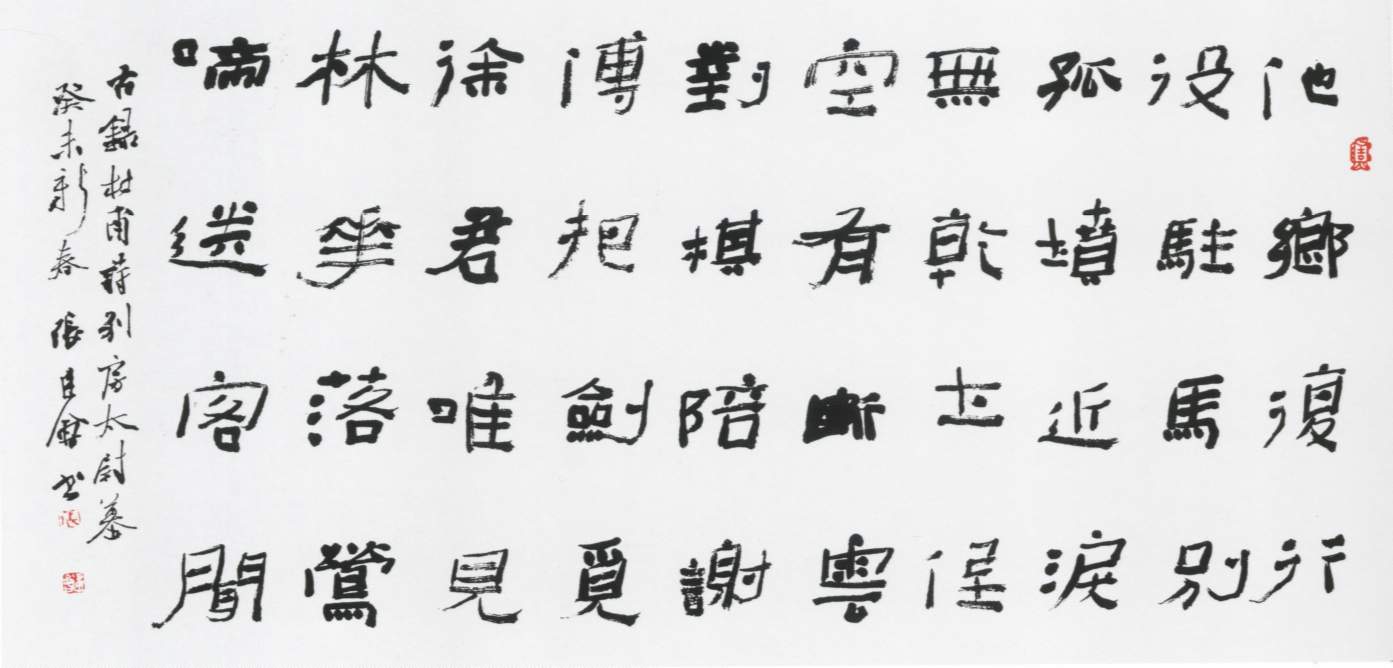 他鄉復行
役駐馬別
孤墳近淚
無乾土低
空有斷雲
對棋陪謝
傅把劍覓
徐君唯見
林花落鶯
啼送客聞
右録杜甫詩別房太尉墓
癸未新春 張 书